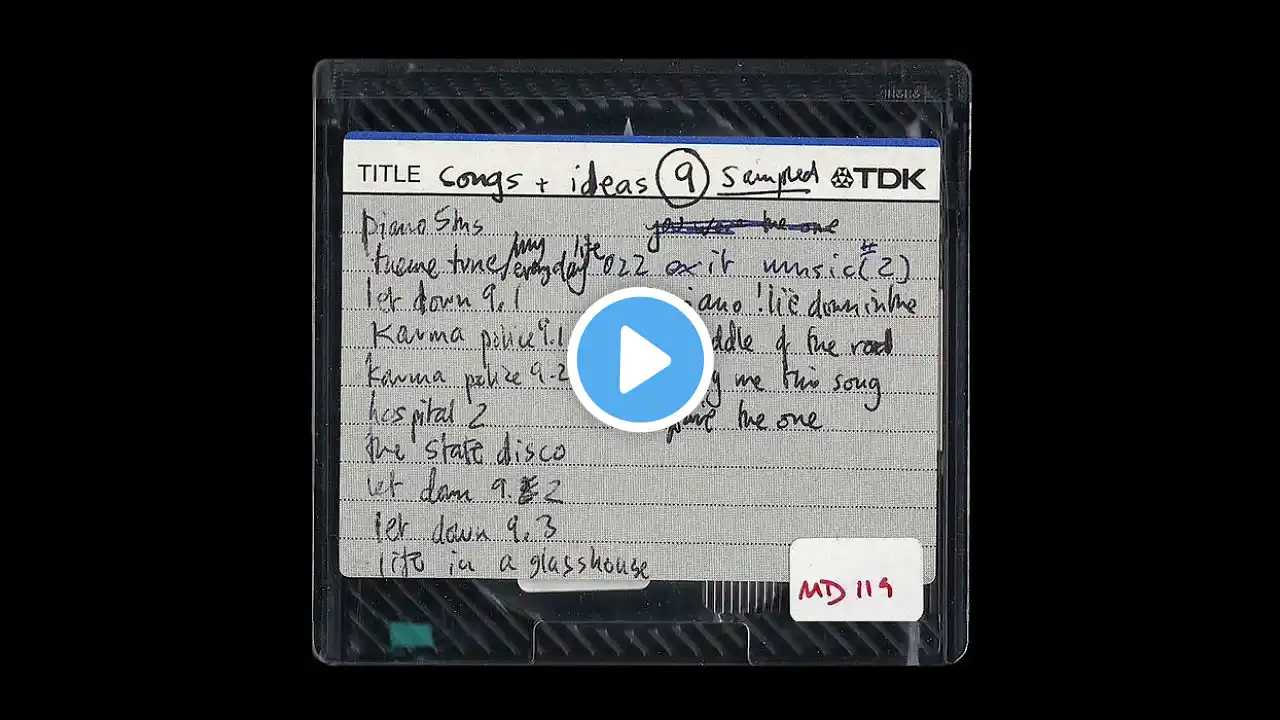 TITLE songs + ideas 9 sampled TDK
piano 5ths
theme tune/my life everyday 022
let down 9.1
karma police 9.1
karma police 9.2
hospital 2
the state disco
let down 9.2
let down 9.3
life in a glasshouse
you're the one
exit music (2)
iano ! lie down in the
ddle of the road
me this song
the one
MD 119